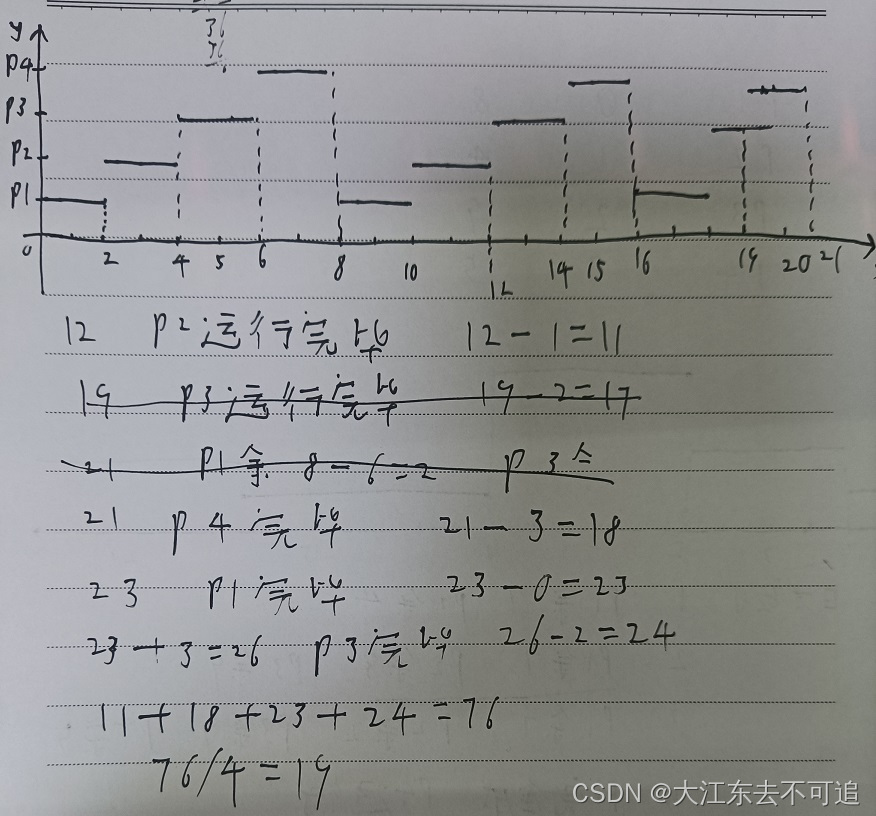 36
76
y
P4
P3
P2
P1
0 2 4 5 6 8 10 12 14 15 16 19 20 21
12 P2运行完毕 12-1=11
19 P3运行完毕 19-2=17
21 P1余 8-6=2 P3
21 P4完毕 21-3=18
23 P1完毕 23-0=23
23+3=26 P3完毕 26-2=24
11+18+23+24=76
76/4=19
CSDN @大江东去不可追